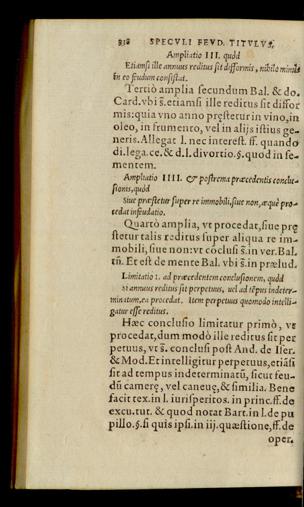 838 SPECVLI FEVD. TITVLVS,
Ampliatio III. quòd
Etiamsi ille annuus reditus sit difformis, nihilo minùs
in eo feudum consistat.
Tertiò amplia secundum Bal. & do.
Card. vbi s̄. etiamsi ille reditus sit diffor
mis: quia vno anno pręstetur in vino, in
oleo, in frumento, vel in alijs istius ge-
neris. Allegat l. nec interest. ff. quando
di. lega. ce. & d. l. diuortio. §. quod in se-
mentem.
Ampliatio IIII. & postrema præcedentis conclu-
sionis, quòd
Siue præstetur super re immobili, siue non, æquè pro-
cedat infeudatio.
Quartò amplia, vt procedat, siue prę
stetur talis reditus super aliqua re im-
mobili, siue non: vt cōclusi s̄. in ver. Bal.
tn̄. Et est de mente Bal. vbi s̄. in prælud.
Limitatio 1. ad præcedentem conclusionem, quòd
si annuus reditus sit perpetuus, uel ad tēpus indeter-
minatum, ea procedat. Item perpetuus quomodo intelli-
gatur esse reditus.
Hæc conclusio limitatur primò, vt
procedat, dum modò ille reditus sit per
petuus, vt s̄. conclusi post And. de Iser.
& Mod. Et intelligitur perpetuus, etiāsi
sit ad tempus indeterminatū, sicut feu-
dū camerę, vel caneuę, & similia. Bene
facit tex. in l. iurisperitos. in princ. ff. de
excu. tut. & quod notat Bart. in l. de pu
pillo. §. si quis ipsi. in iij. quæstione, ff. de
oper.